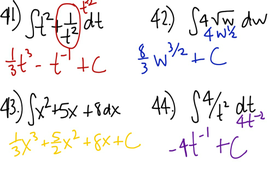 41) ∫t² + 1/t² dt
t⁻²
1/3 t³ - t⁻¹ + C
42.) ∫4√w dw
4w^1/2
8/3 w^3/2 + C
43.) ∫x² + 5x + 8 dx
1/3 x³ + 5/2 x² + 8x + C
44.) ∫4/t² dt
4t⁻²
-4t⁻¹ + C